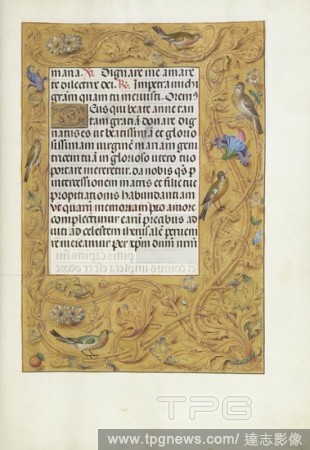 maria. V. Dignare me amare
te dilectrix dei. R. Impetra michi
gratiam quam tu meruisti. Oremus
Deus qui beate anne tan
tam gratiam donare dig
natus es ut beatissimam et glorio
sissimam virginem mariam geni
tricem tuam in glorioso utero suo
portare mereretur. da nobis qs p
intercessionem matris et filie tue
propitiationis habundantiam
ut quarum memoriam pio amore
complectimur earum precibus ad
iuti ad celestem iherusalem perveni
re mereamur per xpm dnm nrm
TPG
www.tpgnews.com/ 達志影像